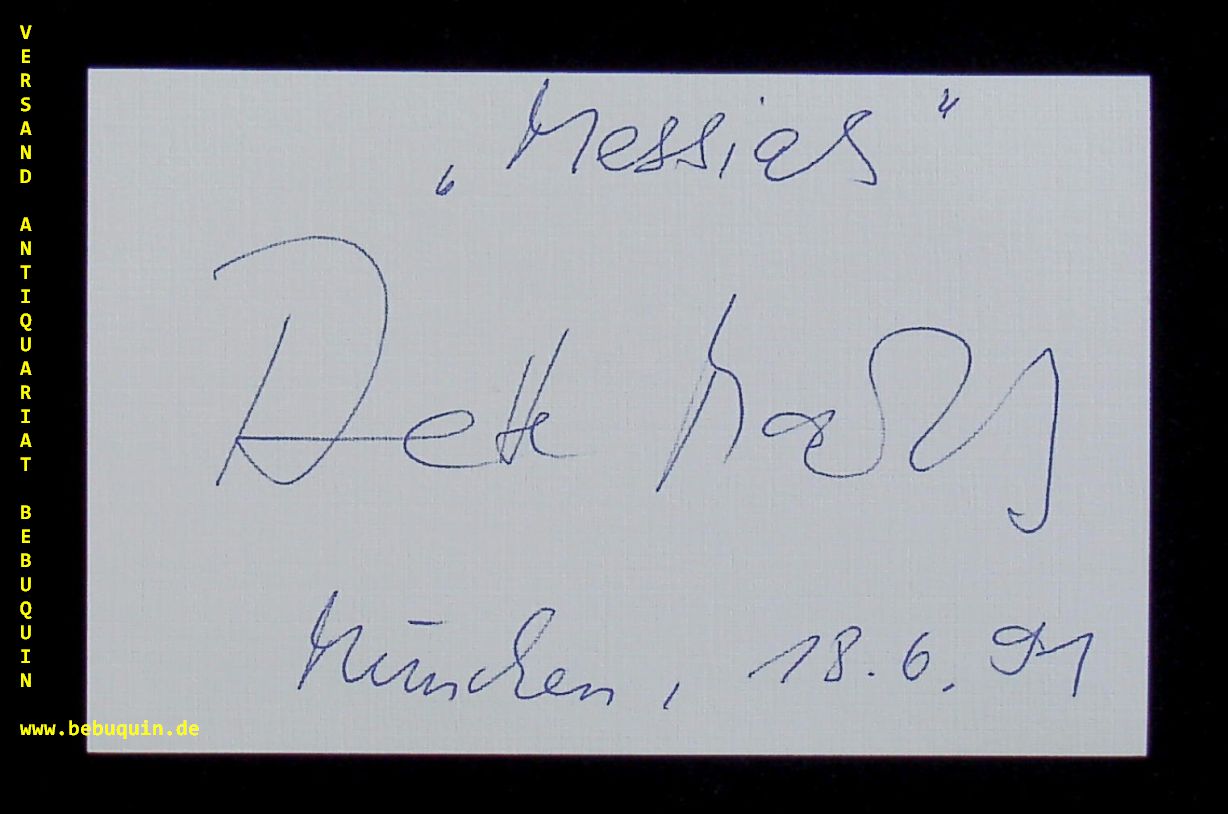 VERSAND ANTIQUARIAT BEBUQUIN
www.bebuquin.de
„Messias“
München, 18.6.91